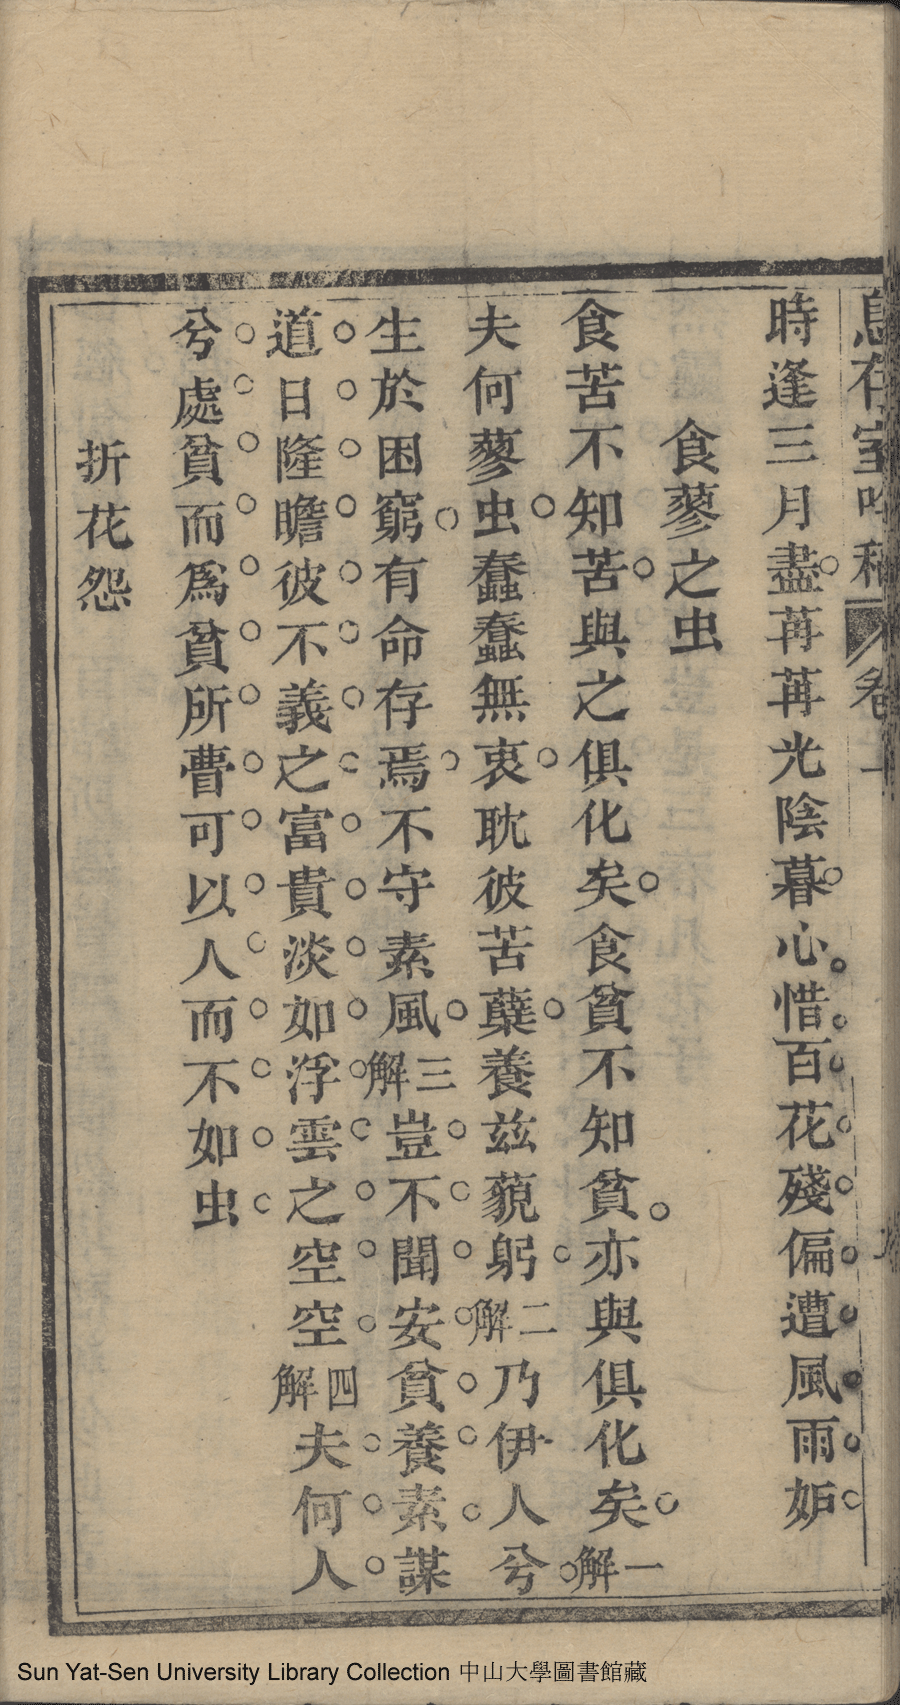 息存室吟稿 卷上
時逢三月盡苒苒光陰暮心惜百花殘偏遭風雨妬
食蓼之虫
食苦不知苦與之俱化矣食貧不知貧亦與俱化矣一解
夫何蓼虫蠢蠢無衷耽彼苦蘗養兹藐躬二解乃伊人兮
生於困窮有命存焉不守素風三解豈不聞安貧養素謀
道日隆瞻彼不義之富貴淡如浮雲之空空四解夫何人
兮處貧而爲貧所瞢可以人而不如虫
折花怨
Sun Yat-Sen University Library Collection 中山大學圖書館藏